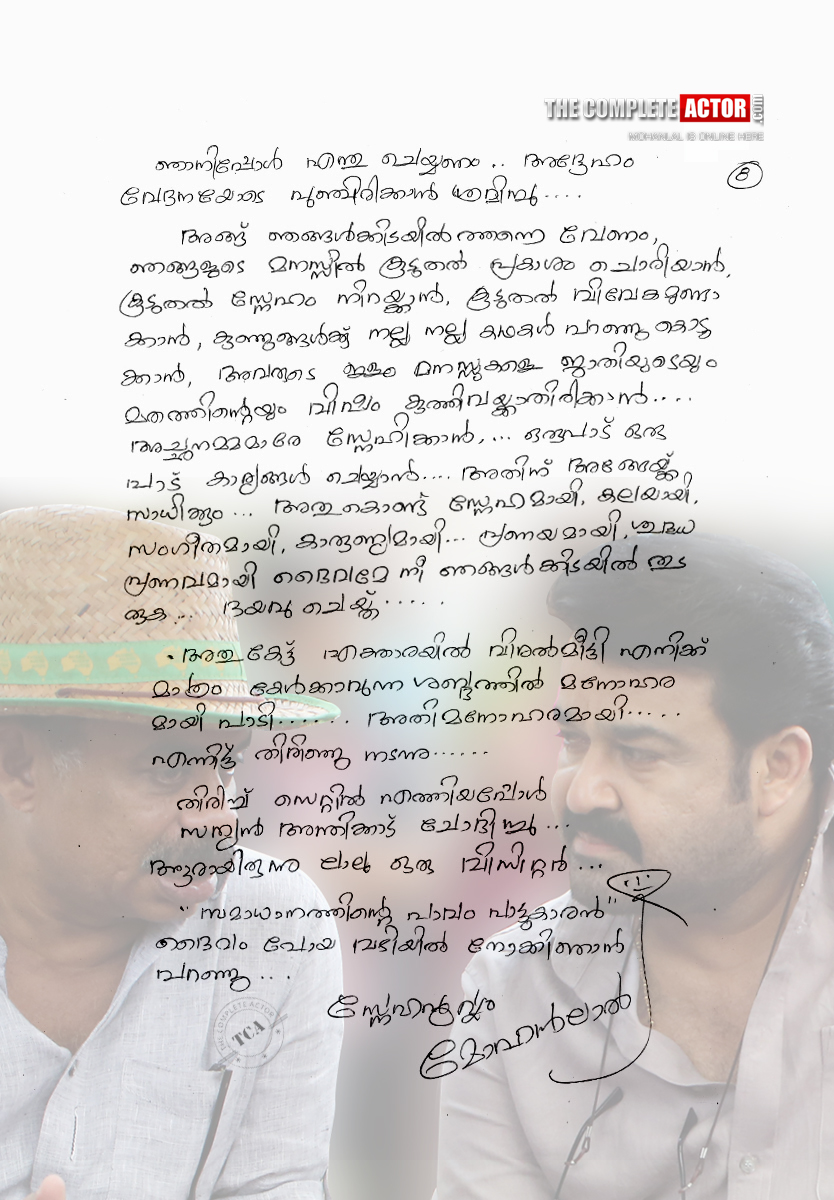 THE COMPLETE ACTOR .COM
MOHANLAL IS ONLINE HERE
8
ഞാനിപ്പോൾ എന്തു ചെയ്യണം .. അദ്ദേഹം
വേദനയോടെ പുഞ്ചിരിക്കാൻ ശ്രമിച്ചു ....
അങ്ങ് ഞങ്ങൾക്കിടയിൽത്തന്നെ വേണം,
ഞങ്ങളുടെ മനസ്സിൽ കൂടുതൽ പ്രകാശം ചൊരിയാൻ,
കൂടുതൽ സ്നേഹം നിറയ്ക്കാൻ, കൂടുതൽ വിവേകമുണ്ടാ
ക്കാൻ, കുഞ്ഞുങ്ങൾക്ക് നല്ല നല്ല കഥകൾ പറഞ്ഞു കൊടു
ക്കാൻ, അവരുടെ മനസ്സുകളെ ജാതിയുടെയും
മതത്തിന്റെയും വിഷം കുത്തിവയ്ക്കാതിരിക്കാൻ....
അച്ഛനമ്മമാരേ സ്നേഹിക്കാൻ,... ഒരുപാട് ഒരു
പാട് കാര്യങ്ങൾ ചെയ്യാൻ.... അതിന് അങ്ങേയ്ക്ക്
സാധിക്കും ... അതുകൊണ്ട് സ്നേഹമായി, കലയായി,
സംഗീതമായി, കാരുണ്യമായി... പ്രണയമായി, ശുദ്ധ
പ്രണവമായി ദൈവമേ നീ ഞങ്ങൾക്കിടയിൽ തുട
രുക ... ദയവു ചെയ്ത് ......
അതുകേട്ട് ഏക്താരയിൽ വിരൽമീട്ടി എനിക്ക്
മാത്രം കേൾക്കാവുന്ന ശബ്ദത്തിൽ മനോഹര
മായി പാടി....... അതിമനോഹരമായി.....
എന്നിട്ട് തിരിഞ്ഞു നടന്നു......
തിരിച്ച് സെറ്റിൽ എത്തിയപ്പോൾ
സത്യൻ അന്തിക്കാട് ചോദിച്ചു ...
ആരായിരുന്നു ലാലു ഒരു വിസിറ്റർ ...
"സമാധാനത്തിന്റെ പാവം പാട്ടുകാരൻ"
ദൈവം പോയ വഴിയിൽ നോക്കി ഞാൻ
പറഞ്ഞു ...
സ്നേഹപൂർവ്വം
മോഹൻലാൽ
THE COMPLETE ACTOR
TCA